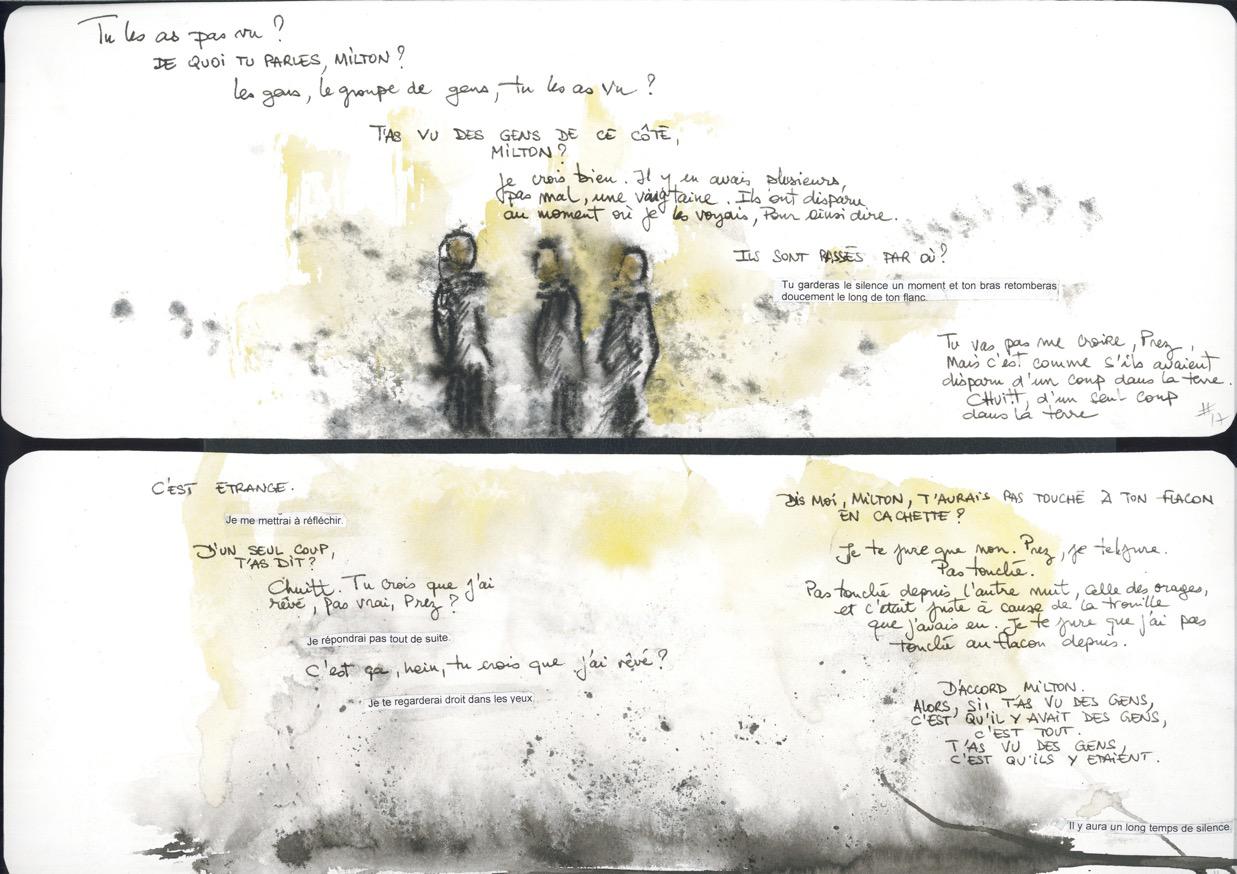 Tu les as pas vu ?
DE QUOI TU PARLES, MILTON ?
Les gens, le groupe de gens, tu les as vu ?
T'AS VU DES GENS DE CE CÔTÉ,
MILTON ?
Je crois bien. Il y en avais plusieurs,
pas mal, une vaingtaine. Ils ont disparu
au moment où je les voyais, Pour ainsi dire.
ILS SONT PASSÉS PAR OÙ ?
Tu garderas le silence un moment et ton bras retomberas
doucement le long de ton flanc.
Tu vas pas me croire, Prez,
Mais c'est comme s'ils avaient
disparu d'un coup dans la terre.
CHuitt, d'un seul coup
dans la terre
#17
C'EST ETRANGE.
Je me mettrai à réfléchir.
D'UN SEUL COUP,
T'AS DIT ?
Chuitt. Tu crois que j'ai
rêvé, pas vrai, Prez ?
Je répondrai pas tout de suite.
C'est ça, hein, tu crois que j'ai rêvé ?
Je te regarderai droit dans les yeux.
DIS MOI, MILTON, T'AURAIS PAS TOUCHÉ À TON FLACON
EN CACHETTE ?
Je te jure que non. Prez, je te le jure.
Pas touché.
Pas touché depuis l'autre nuit, celle des orages,
et c'était juste à cause de la trouille
que j'avais eu. Je te jure que j'ai pas
touché au flacon depuis.
D'ACCORD MILTON.
ALORS, SI T'AS VU DES GENS,
C'EST QU'IL Y AVAIT DES GENS,
C'EST TOUT.
T'AS VU DES GENS,
C'EST QU'ILS Y ETAIENT.
Il y aura un long temps de silence.